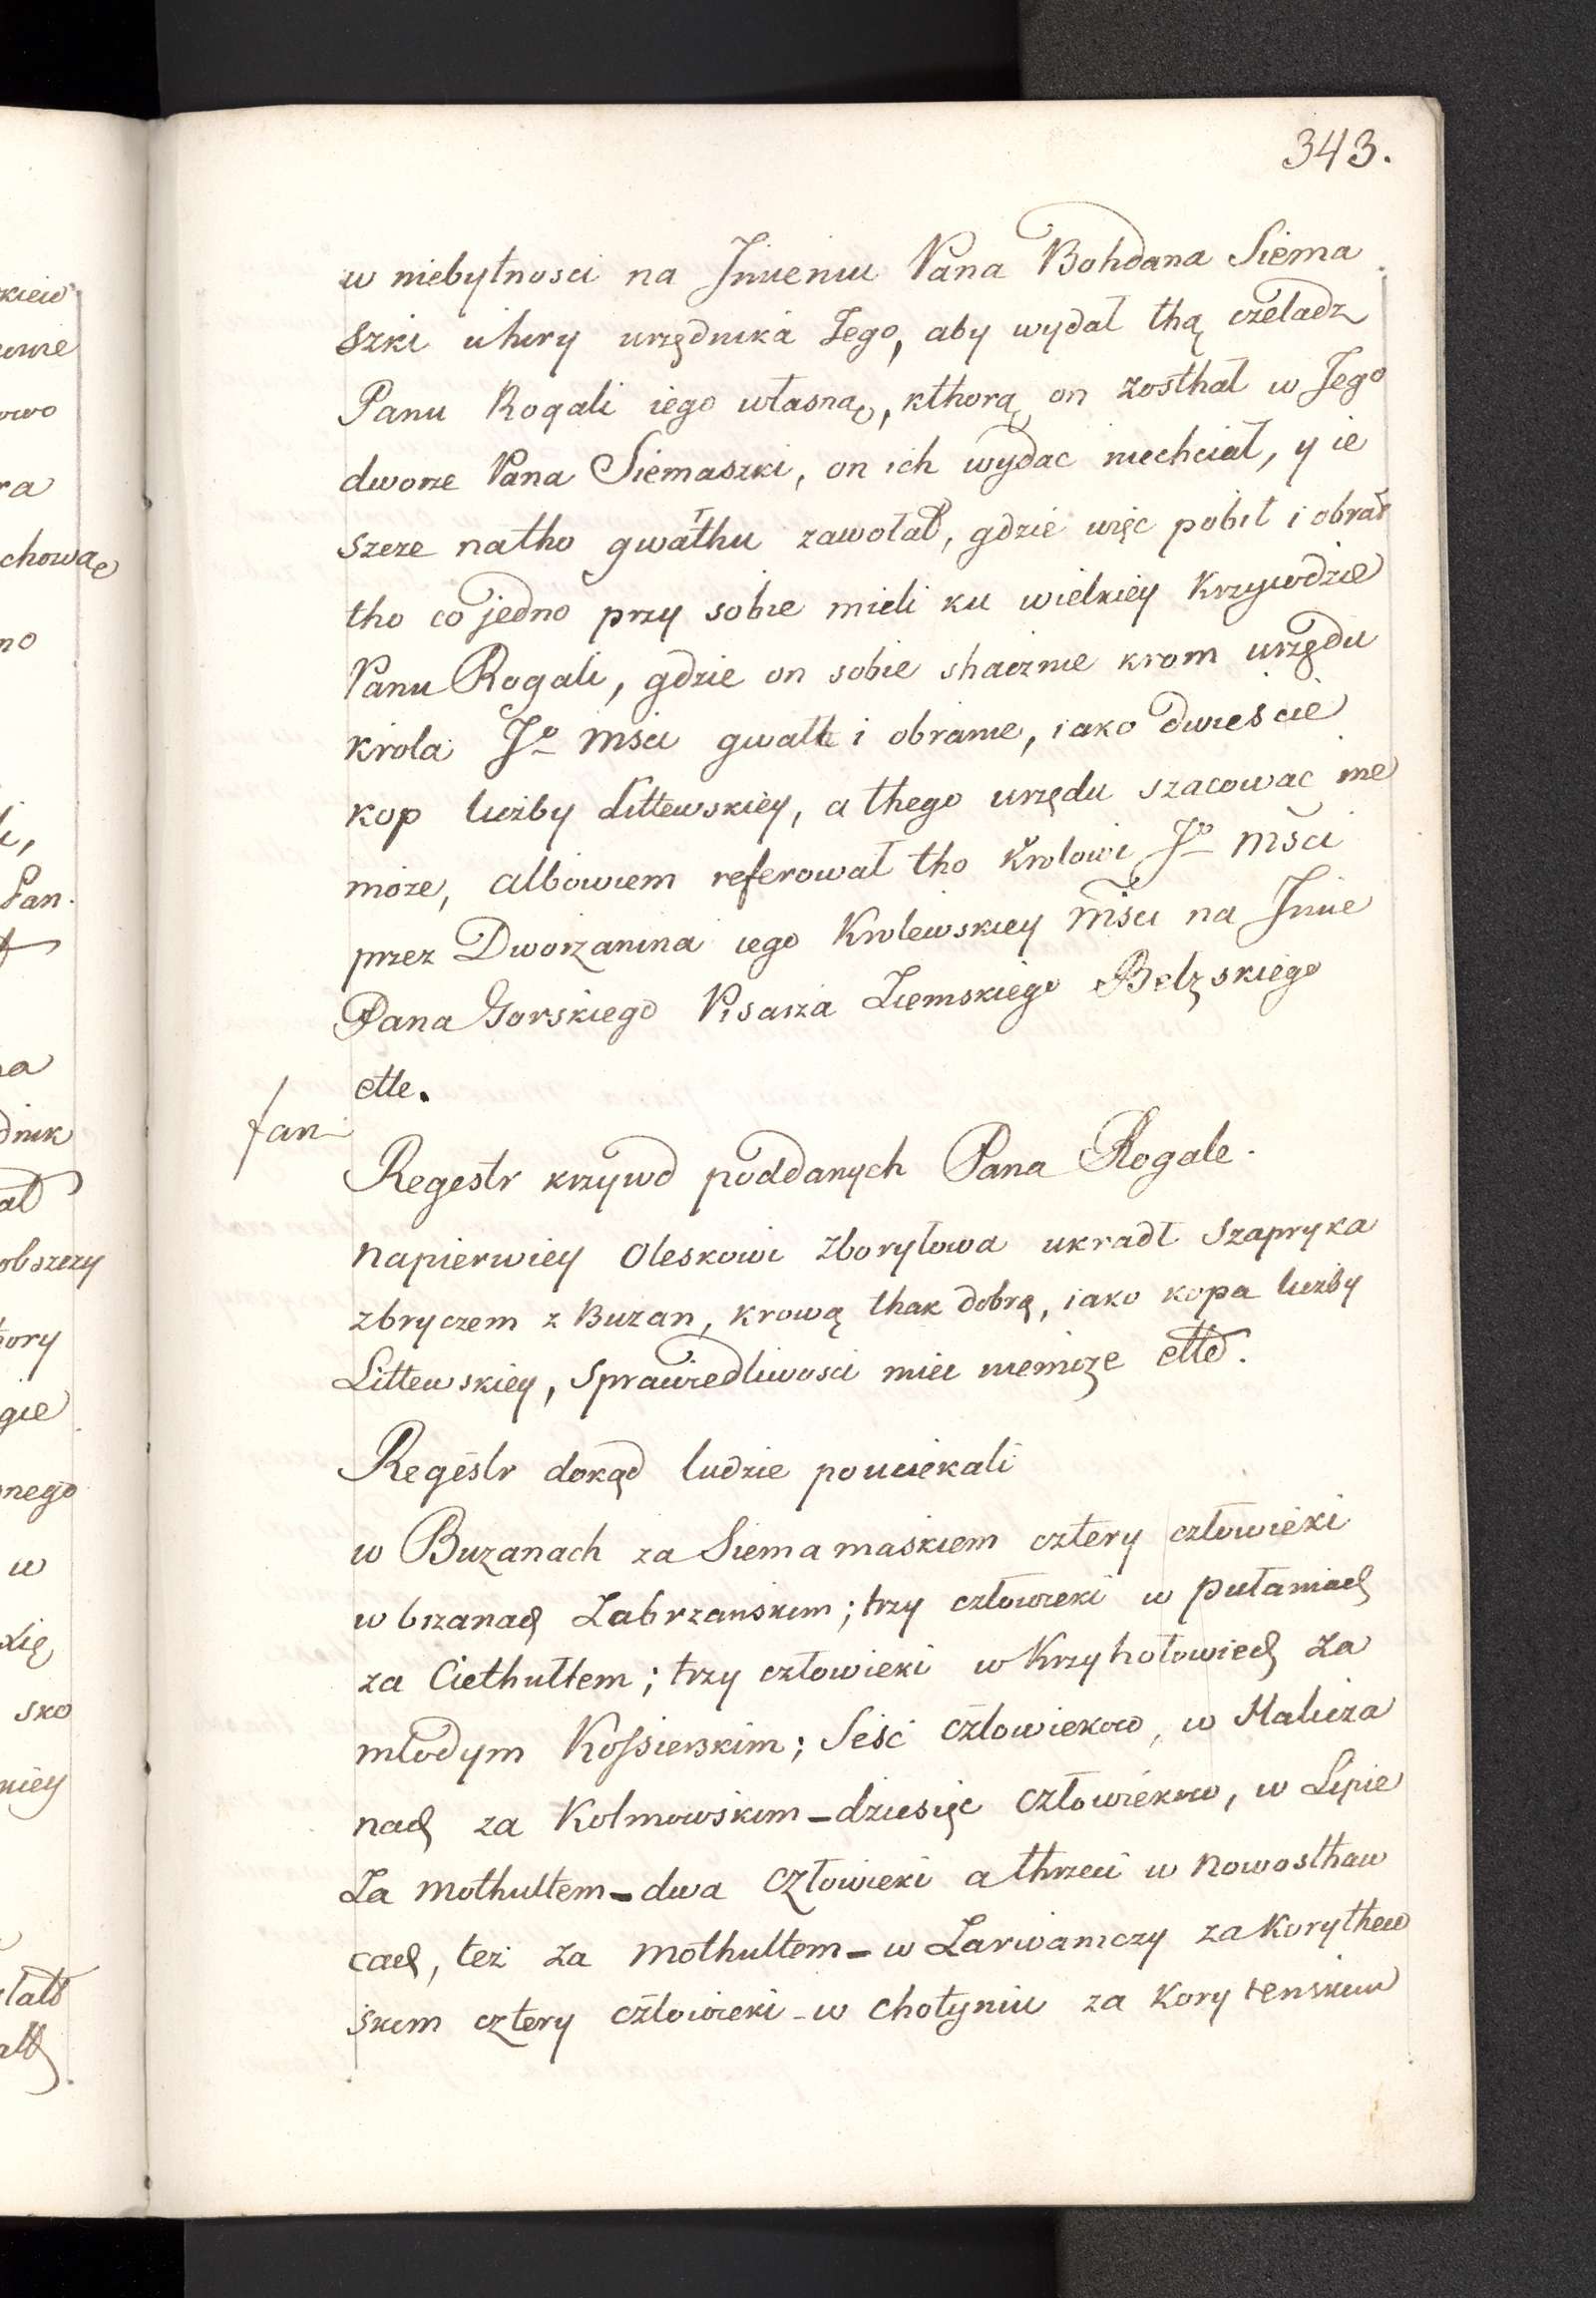 343.
w niebytnosci na Jmieniu Pana Bohdana Siema
szki uhery urzędnika Jego, aby wydał thą czeladz
Panu Rogali iego własną, kthorą on zosthał w Jego
dworze Pana Siemaszki, on ich wydac niechciał, y ie
szcze natho gwałthu zawołał, gdzie więc pobił i obrał
tho co jedno przy sobie mieli ku wielkiey krzywdzie
Panu Rogali, gdzie on sobie shacznie krom urzędu
krola Jº mści gwałt i obranie, iako dwieście
kop liczby Littewskiey, a thego urzędu szacowac nie
może, albowiem referował tho krolowi Jº mści
przez Dworzanina iego Krolewskiey mści na Jmie
Pana Gorskiego Pisarza Ziemskiego Bełzskiego
ette.
fan
Regestr krzywd poddanych Pana Rogale.
napierwiey Oleskowi Zborytowa ukradł Szapryka
zbryczem z Buzan, krową thak dobrą, iako kopa liczby
Littewskiey, Sprawiedliwosci miec niemoże ette.
Regestr dokąd ludzie pouciekali
w Buzanach za Siemamaskiem cztery człowieki
w brzanach Zabrzanskim; trzy człowieki w pułaniach
za Ciethultem; trzy człowieki w Krzyhołowiech za
młodym Kossierskim; Seść człowiekow, w Malicza
nach za Kolmowskim – dziesięc człowiekow, w Lipie
Za Mothultem – dwa człowieki a thrzeci w nowosthaw
cach, też za Mothultem – w Larwaniczy za Korythen
skim cztery człowieki – w chotyniu za Korytenskim